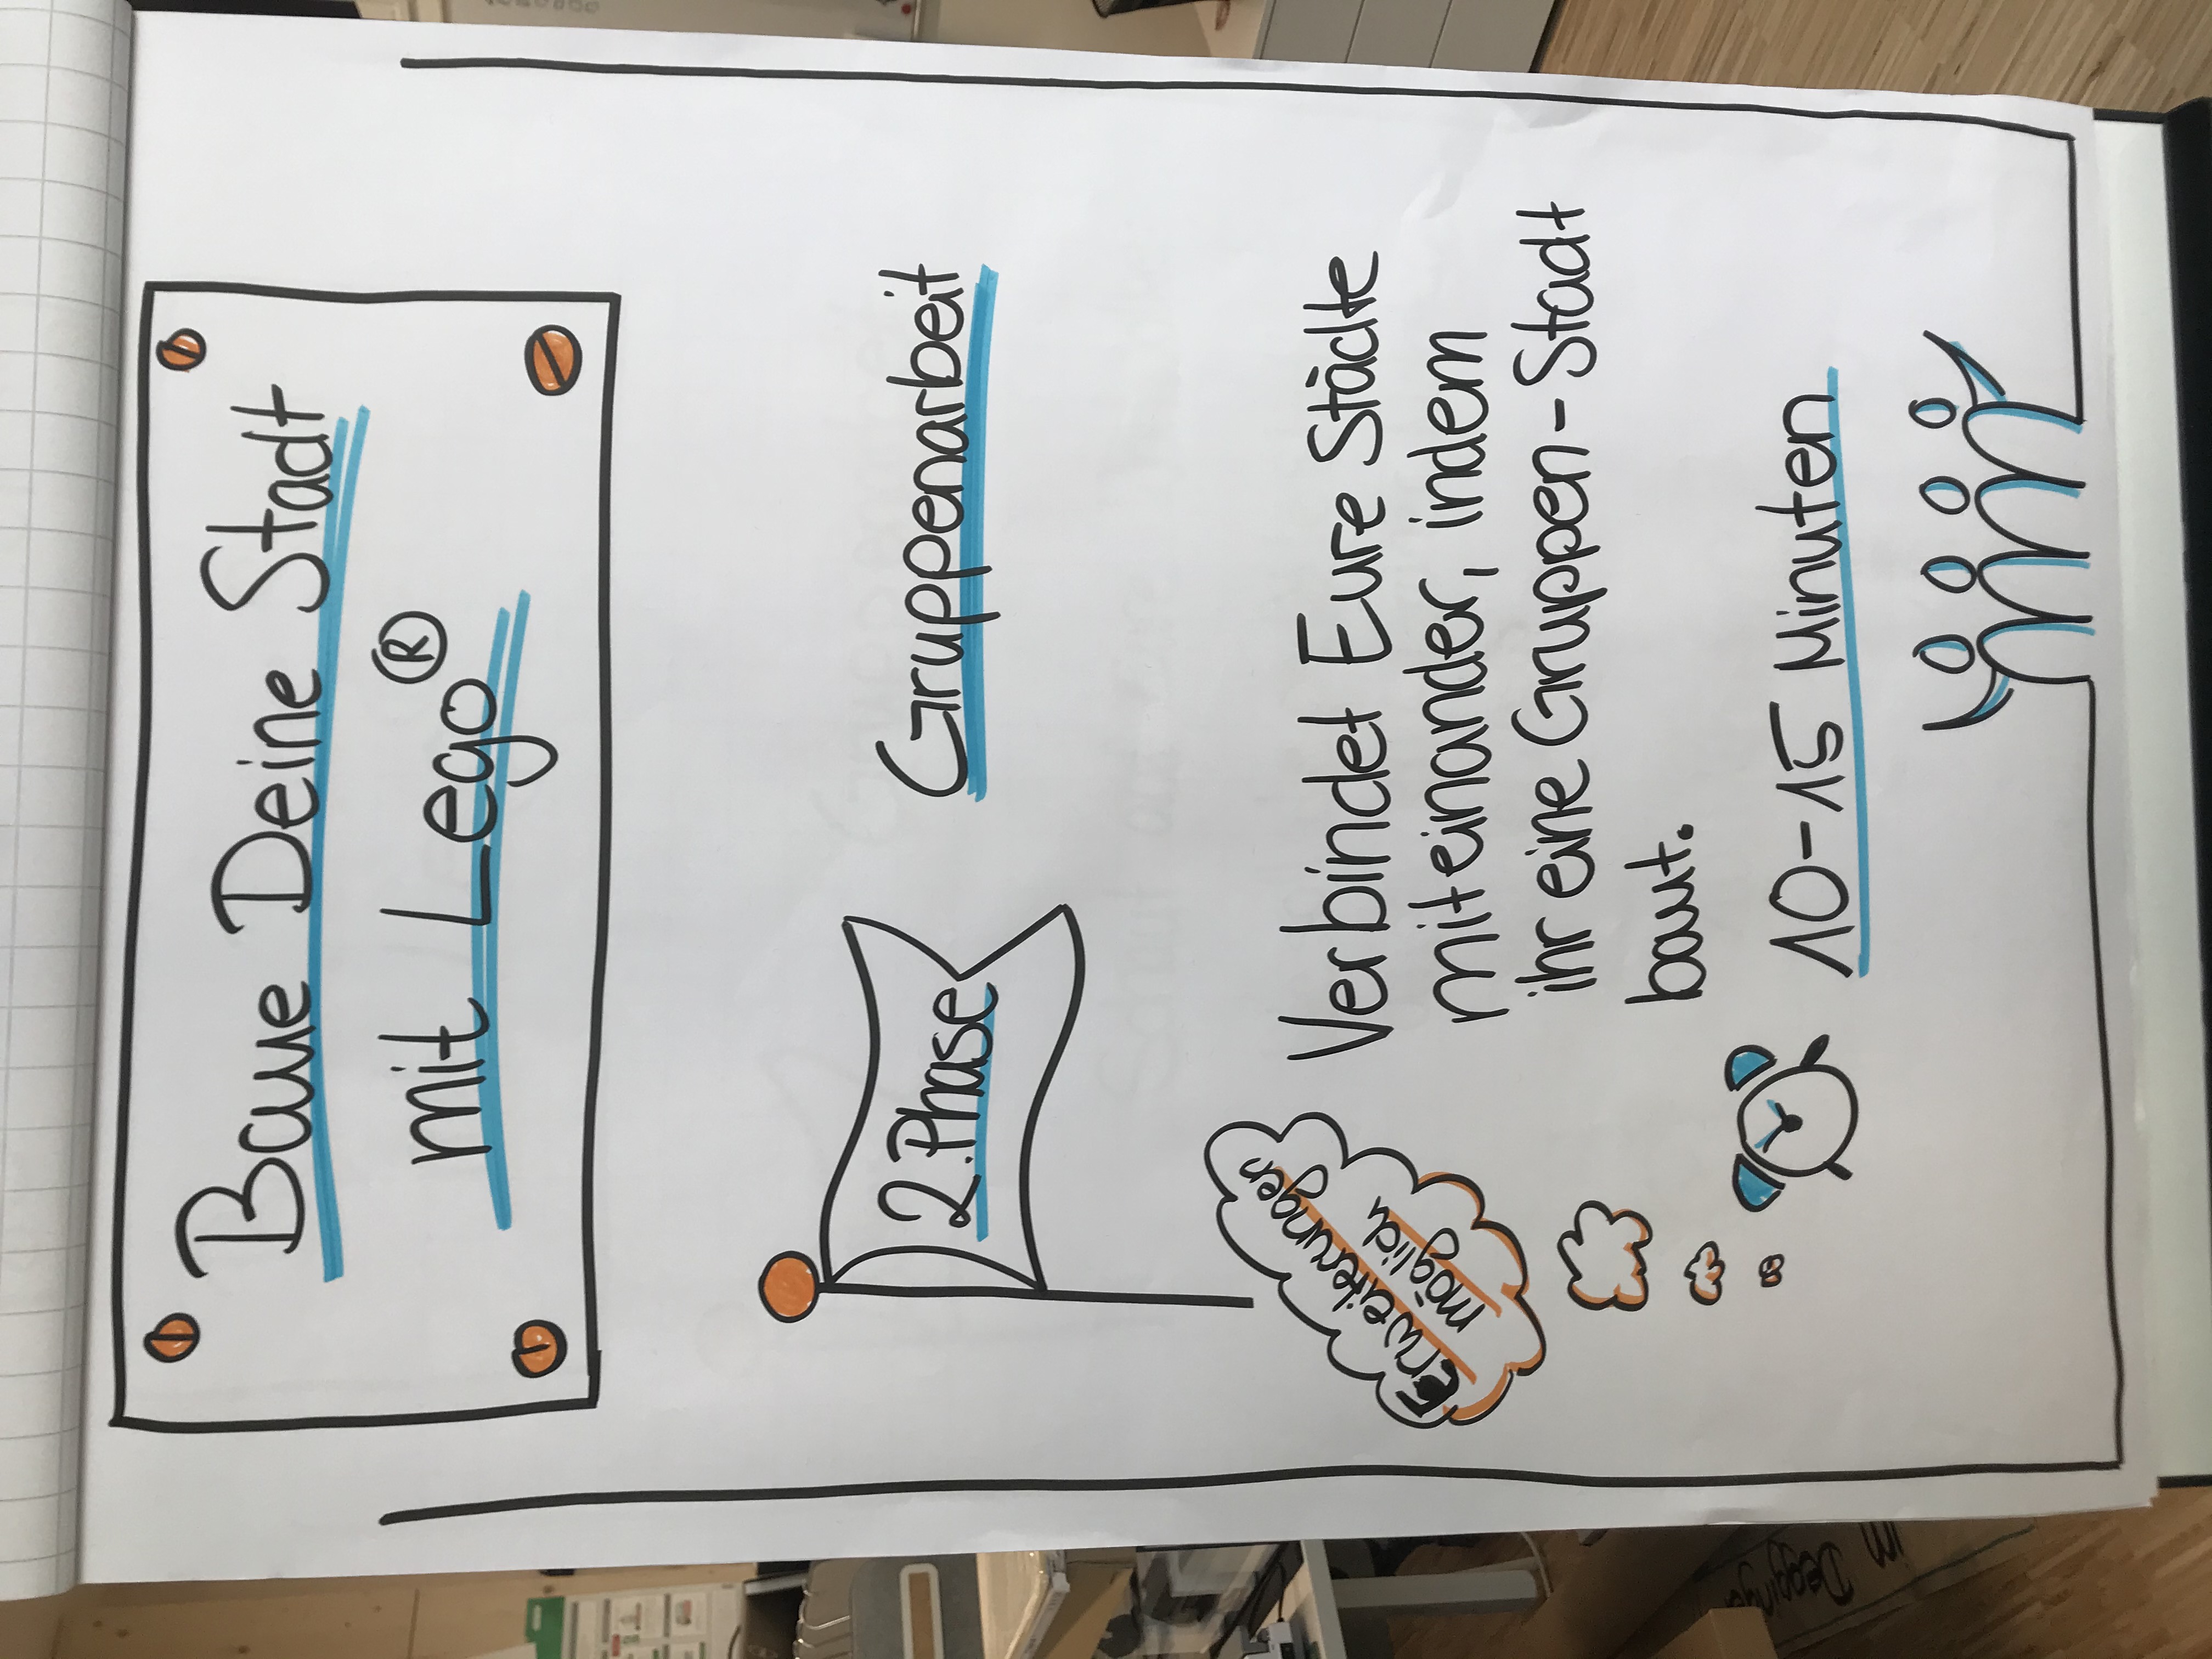 Baue Deine Stadt
mit Lego®
2. Phase
Gruppenarbeit
Erweiterungen
möglich
Verbindet Eure Städte
miteinander, indem
ihr eine Gruppen-Stadt
baut.
10-15 Minuten